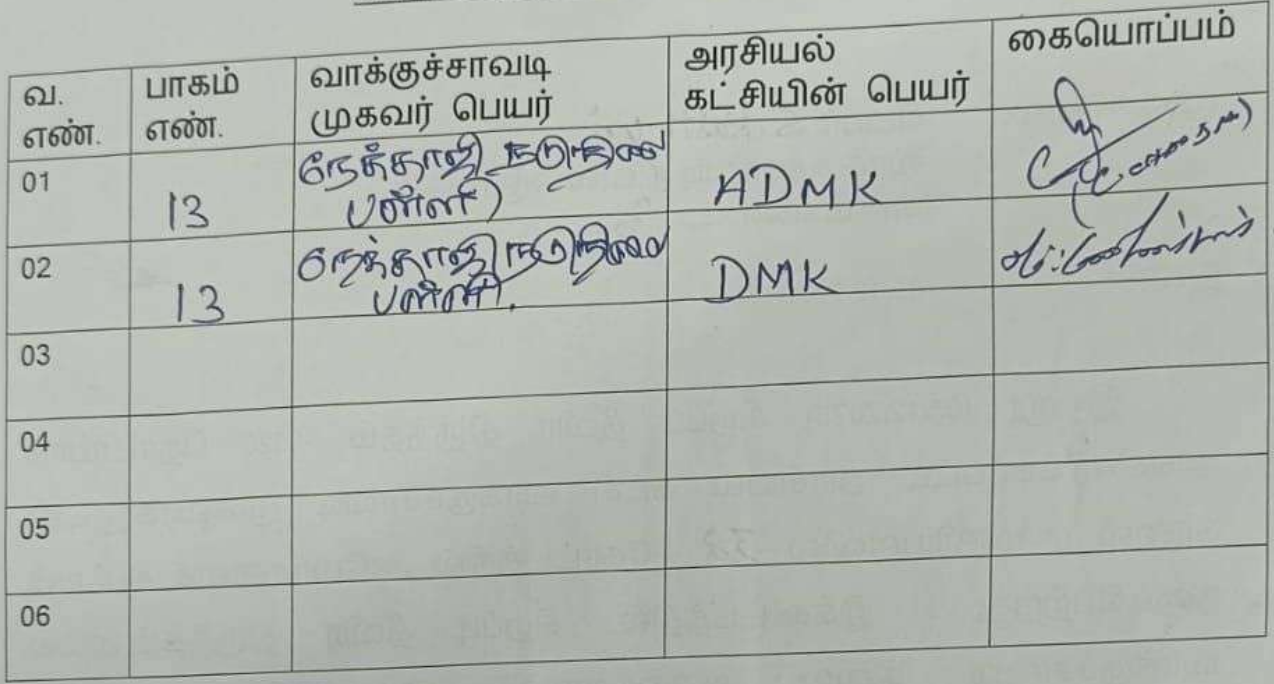 வ. எண். பாகம் எண். வாக்குச்சாவடி முகவர் பெயர் அரசியல் கட்சியின் பெயர் கையொப்பம்
01 13 நேத்தாஜி நடுநிலை பள்ளி ADMK
02 13 நேத்தாஜி நடுநிலை பள்ளி. DMK
03
04
05
06